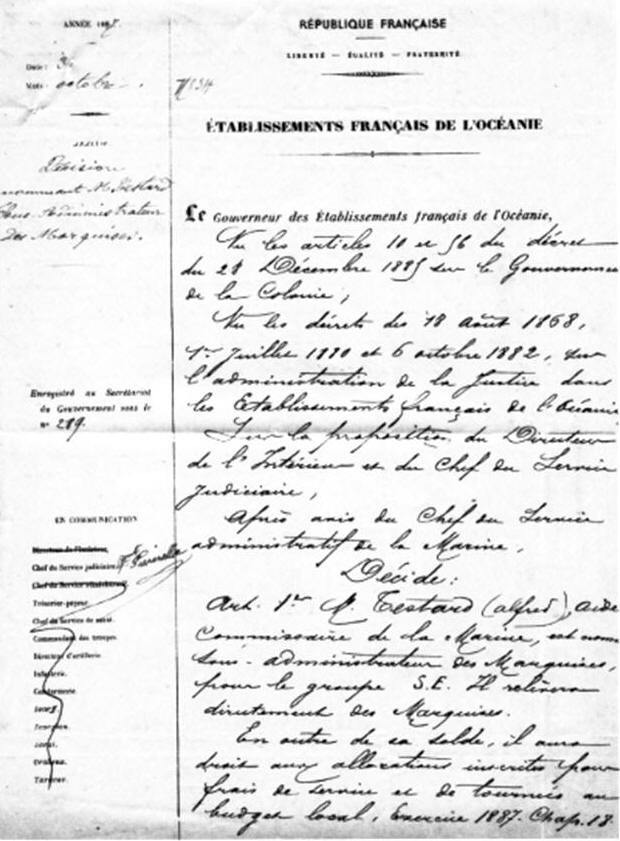 ANNÉE 188
RÉPUBLIQUE FRANÇAISE
LIBERTÉ — ÉGALITÉ — FRATERNITÉ
Date:
Mois: octobre
ÉTABLISSEMENTS FRANÇAIS DE L'OCÉANIE
Décision
nommant M. Testard
Sous-Administrateur
des Marquises.
Enregistré au Secrétariat
du Gouvernement sous le
n° 289.
EN COMMUNICATION
Directeur de l'Intérieur,
Chef du Service judiciaire,
Chef du Service
Trésorier-payeur,
Chef du Service de santé,
Commandant des troupes,
Directeur d'artillerie,
Infanterie,
Gendarmerie,
Le Gouverneur des Établissements français de l'Océanie,
Vu les articles 10 et 56 du décret
du 28 Décembre 1885 sur le
de la Colonie;
Vu les décrets des 18 août 1868,
1er Juillet 1880 et 6 octobre 1882, sur
l'administration de la Justice dans
les Etablissements français de l'Océanie
Sur la proposition du Directeur
de l'Intérieur et du Chef du Service
Judiciaire,
Après avis du Chef du Service
administratif de la Marine.
Décide:
Art. 1er M. Testard (alfred), aide
Commissaire de la Marine, est
sous-administrateur des Marquises,
pour le groupe S.E. Il relèvera
directement des Marquises.
En outre de sa solde, il aura
droit aux allocations inscrites pour
frais de service et de tournées au
budget local, Exercice 1887. Chap. 18